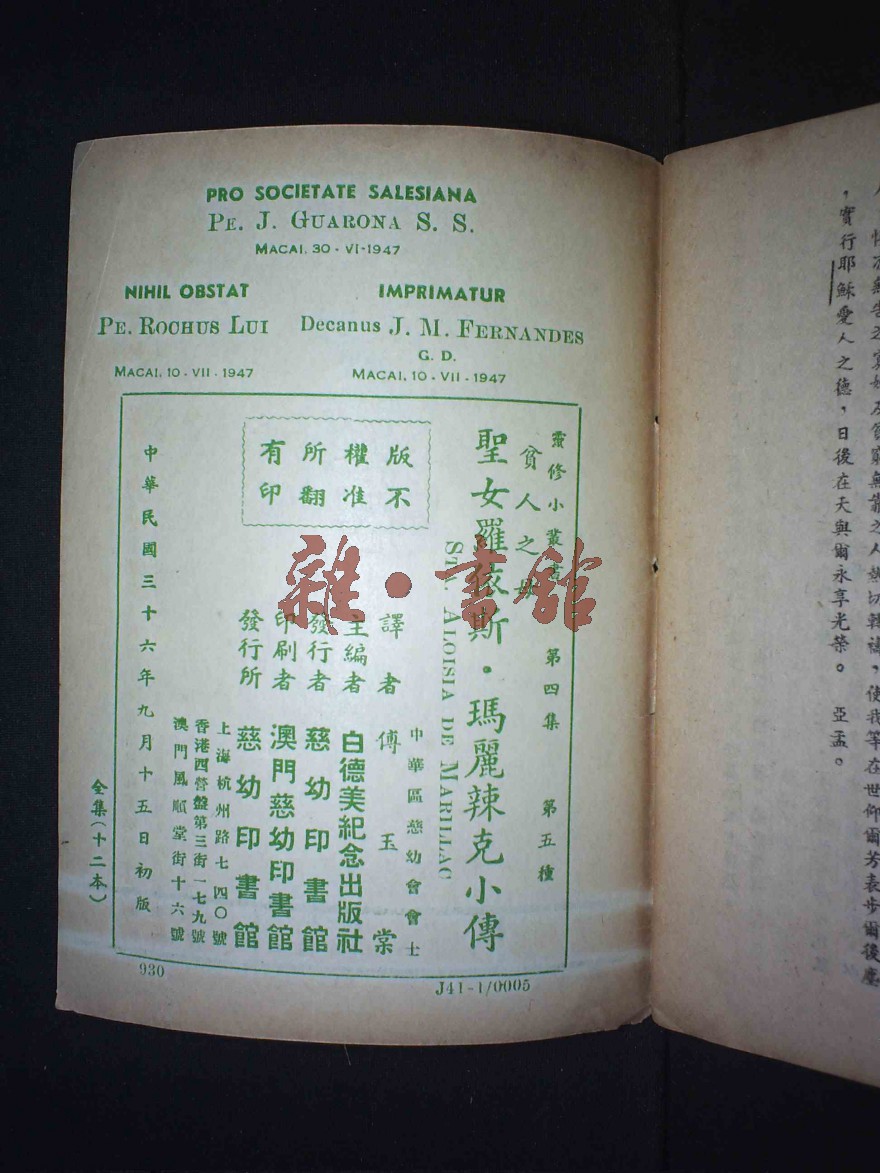 PRO SOCIETATE SALESIANA
PE. J. GUARONA S. S.
MACAI. 30 - VI-1947
NIHIL OBSTAT
PE. ROCHUS LUI
MACAI. 10 - VII - 1947
IMPRIMATUR
Decanus J. M. FERNANDES
G. D.
MACAI. 10 - VII - 1947
靈修小叢書 第四集 第五種
貧人之母
聖女羅依斯·瑪麗辣克小傳
STA. ALOISIA DE MARILLAC
版權所有
不准翻印
中華區慈幼會會士
譯者 傅玉棠
主編者 白德美紀念出版社
發行者 慈幼印書館
印刷者 澳門慈幼印書館
發行所 慈幼印書館
上海杭州路七四〇號
香港西營盤第三街一七九號
澳門風順堂街十六號
中華民國三十六年九月十五日初版
全集(十二本)
930
J41-1/0005
雜·書館
之寡婦及貧窮無靠之人熱切轉禱,使我等在世仰爾芳表步爾後塵
,實行耶穌愛人之德,日後在天與爾永享光榮。 亞孟。